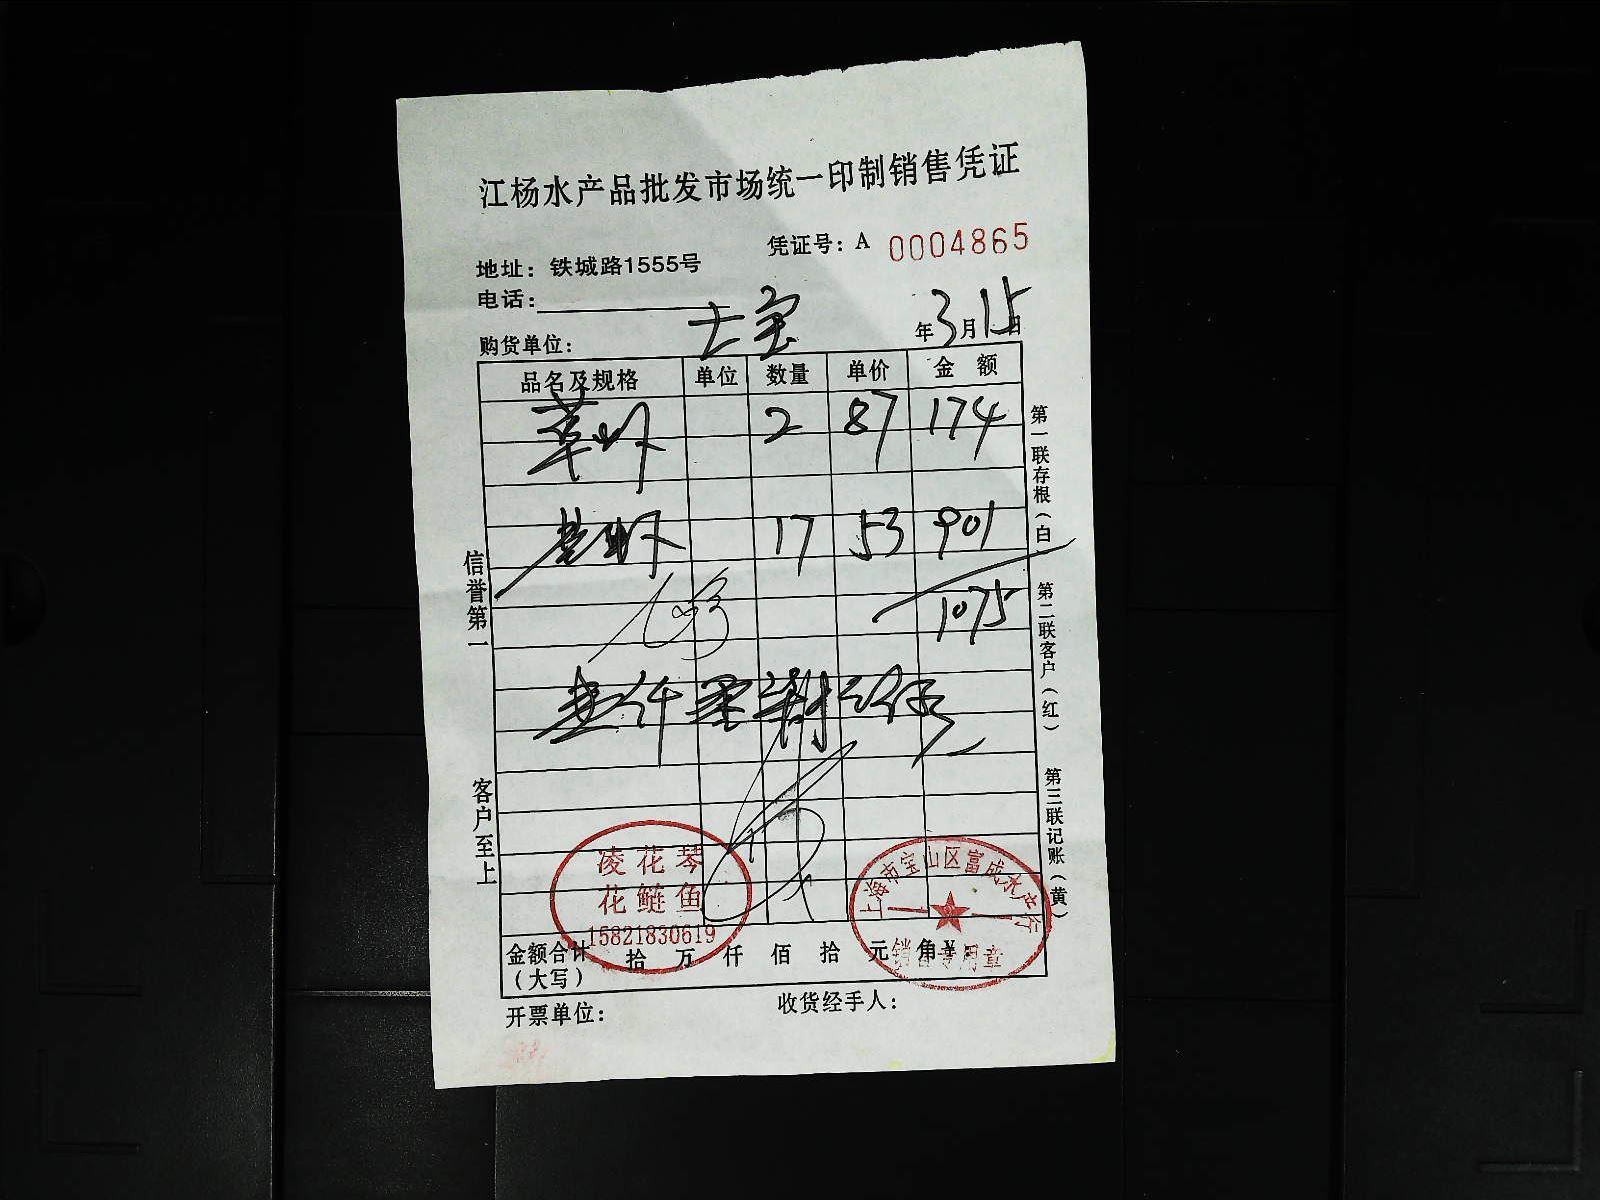 江杨水产品批发市场统一印制销售凭证
凭证号：A 0004865
地址：铁城路1555号
电话：
购货单位：士宝 年3月15日
品名及规格 单位 数量 单价 金额
草虾 2 87 174
虾 17 53 901
1075
壹仟零柒拾伍元
信誉第一
客户至上
第一联存根（白）
第二联客户（红）
第三联记账（黄）
凌花琴
花鲢鱼
15821830619
上海市宝山区富成水产行
销售专用章
金额合计（大写） 拾 万 仟 佰 拾 元 角 ¥
开票单位： 收货经手人：